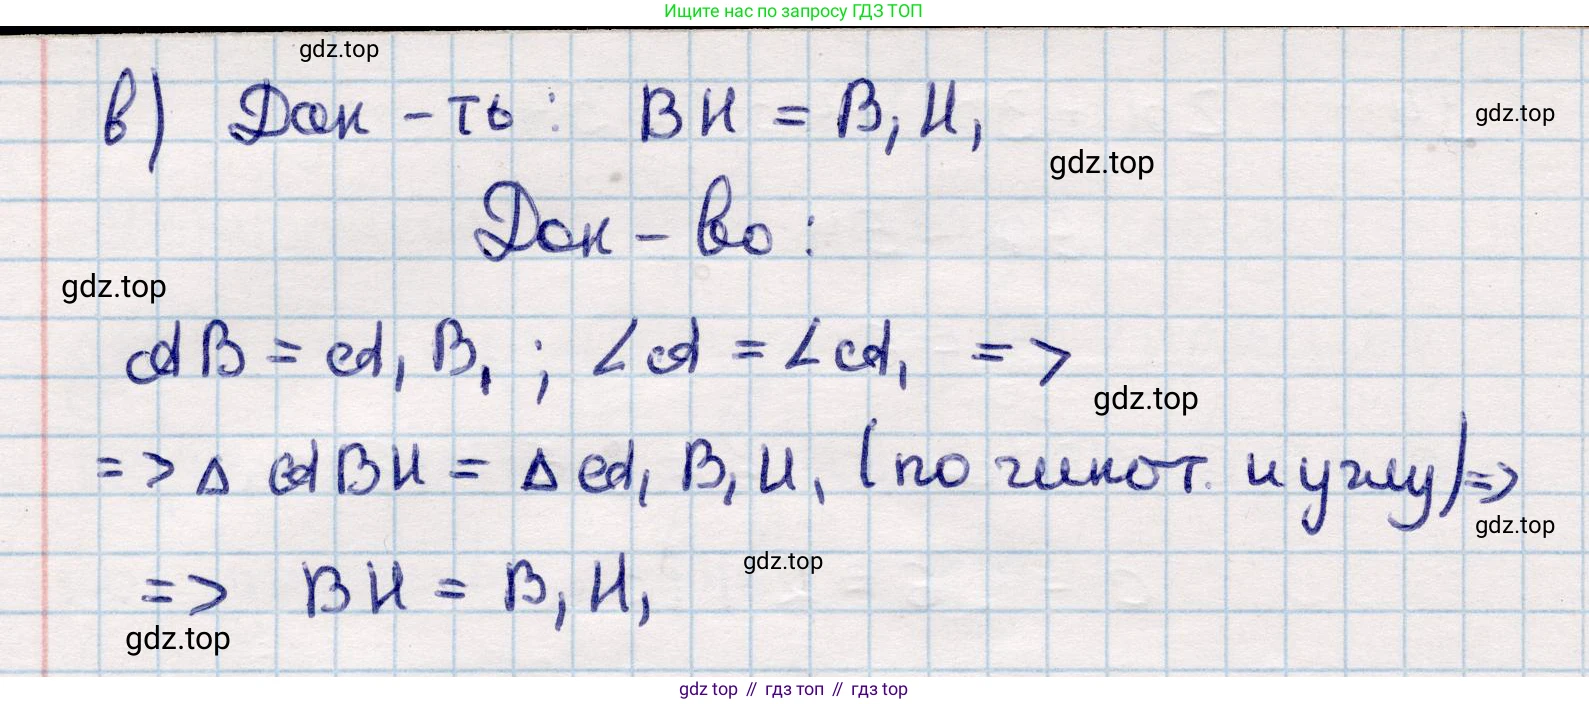 Ищите нас по запросу ГДЗ ТОП
gdz.top
в) Док-ть: BH = B₁H₁
gdz.top
gdz.top
Док-во:
gdz.top
AB = A₁B₁; ∠A = ∠A₁ =>
gdz.top
=> Δ ABH = Δ A₁B₁H₁ (по гипот. и углу) =>
gdz.top
=> BH = B₁H₁
gdz.top
gdz.top
gdz top // гдз топ // гдз top